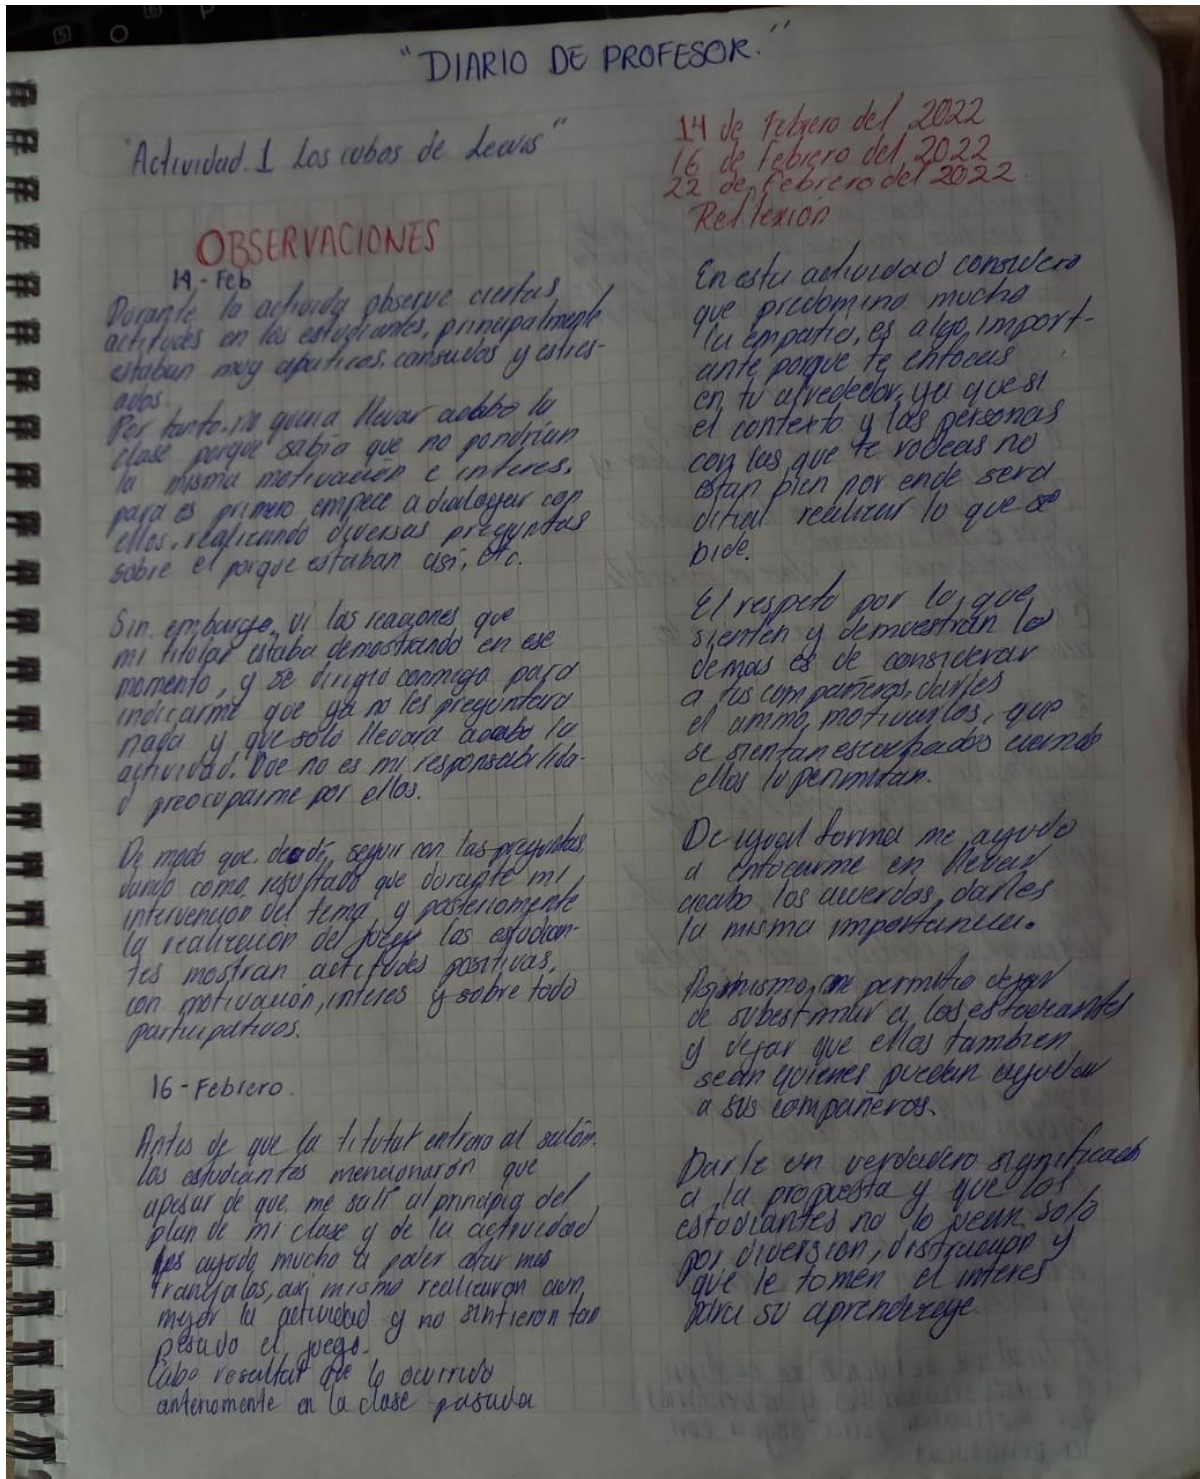 "DIARIO DE PROFESOR."
"Actividad.1 Los cubos de Lewis"
14 de Febrero del 2022
16 de Febrero del 2022
22 de Febrero del 2022.
OBSERVACIONES
14-Feb
Durante la activida observe ciertas
actitudes en los estudiantes, principalmente
estaban muy apaticos, cansados y estres-
ados.
Por tanto, no queria llevar acabo la
clase porque sabia que no pondrian
la misma motivación e interes,
para es primero empece a dialogar con
ellos, realizando diversas preguntas
sobre el porque estaban asi, etc.
Sin embargo, vi las reaciones que
mi titular estaba demostrando en ese
momento, y se dirigio conmigo para
indicarme que ya no les preguntara
nada y que solo llevara acabo la
actividad. Que no es mi responsabilida-
d preocuparme por ellos.
De modo que decidi seguir con las preguntas,
dando como resultado que durante mi
intervencion del tema y posteriomente
la realización del juego los estudian-
tes mostran actitudes positivas,
con motivación, interes y sobre todo
participativos.
16-Febrero.
Antes de que la titutat entrara al salón.
los estudiantes mencionarón que
apesar de que me sali al principio del
plan de mi clase y de la actividad
les ayudo mucho a poder estar mas
tranquilos, asi mismo realizaron aun
mejor la actividad y no sintieron tan
pesado el juego.
Cabe resaltar que lo ocurrido
anteriomente en la clase pasada
Reflexión
En esta actividad considero
que predomino mucho
la empatia, es algo import-
ante porque te enfocas
en tu alrededor, ya que si
el contexto y las personas
con las que te rodeas no
estan bien por ende sera
dificil realizar lo que se
pide.
El respeto por lo que
sienten y demuestran lo
demas es de considerar
a tus compañeros, darles
el animo, motivarlos, que
se sientan escuchados cuando
ellos lo permitan.
De igual forma me ayudo
a enfocarme en llevar
acabo los acuerdos, darles
la misma importancia.
Asimismo, me permitio dejar
de subestimar a los estudiantes
y dejar que ellos tambien
sean quienes puedan ayudar
a sus compañeros.
Darle un verdadero significado
a la propuesta y que los
estudiantes no lo vean solo
por diversion, distracción y
que le tomen el interes
para su aprendizaje.